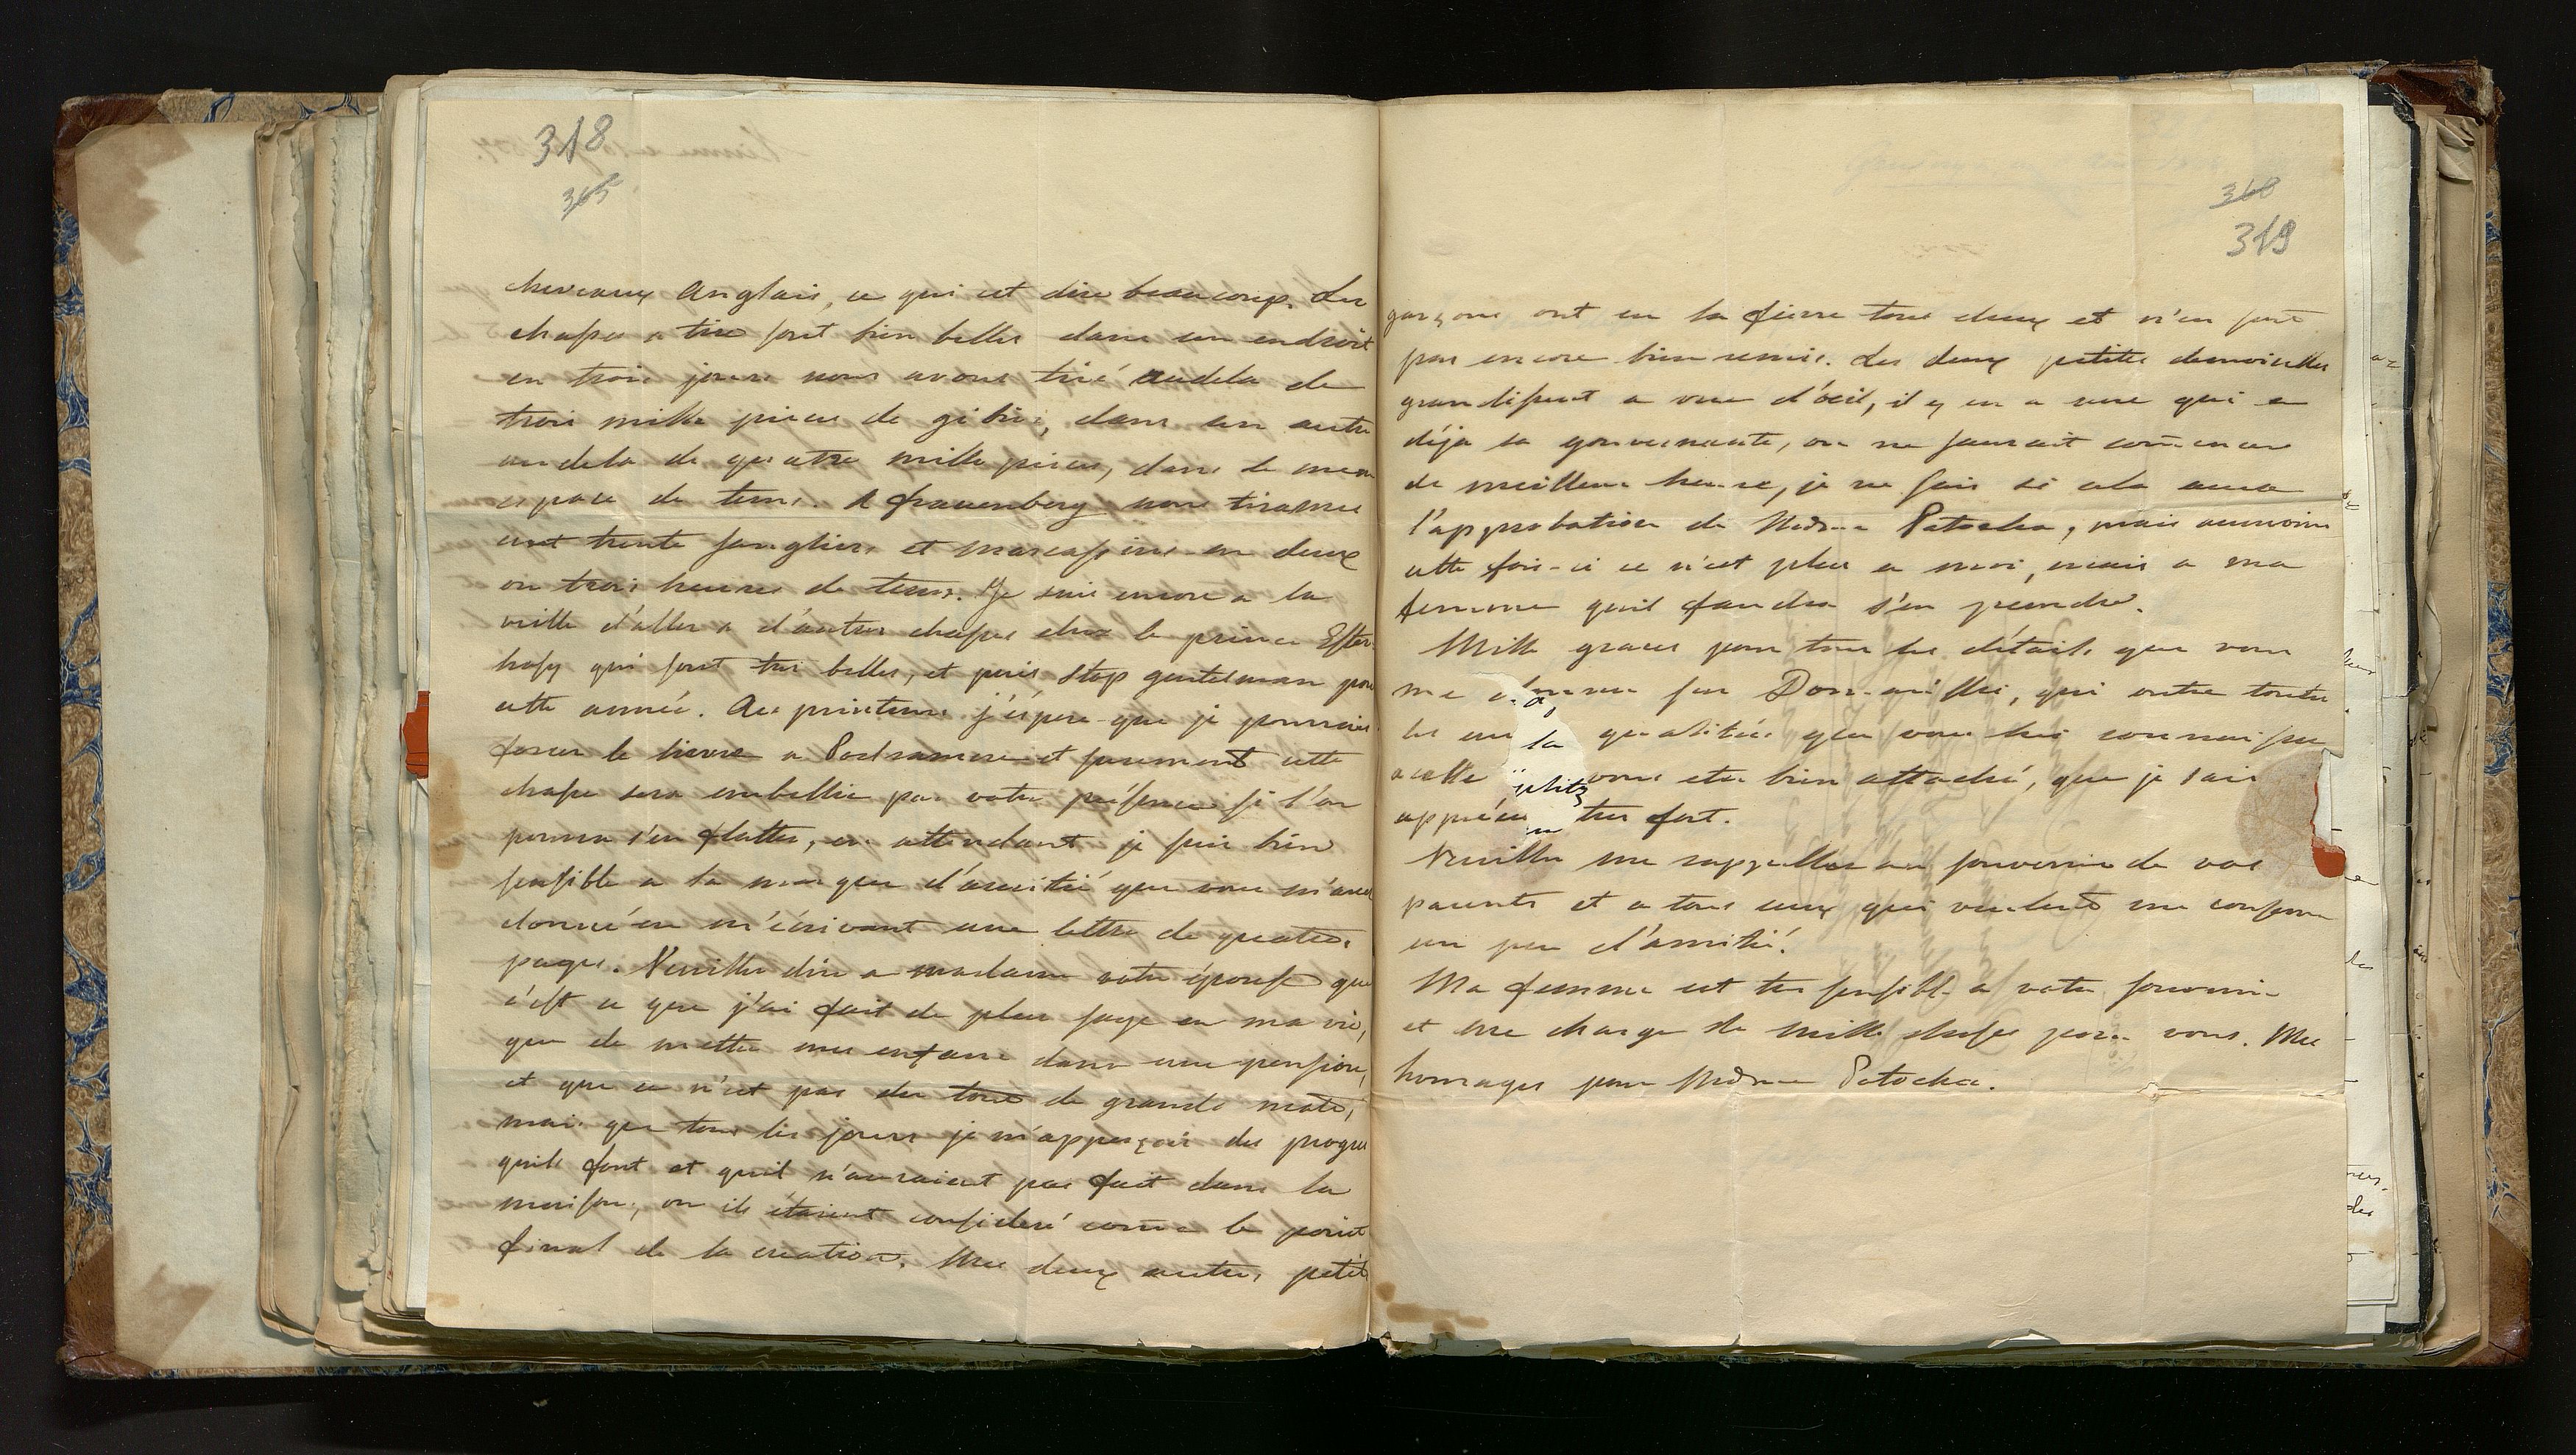 318
365
chevaux Anglais, ce qui est dire beaucoup. Les
chasses a tire sont bien belles dans un endroit
en trois jours nous avons tiré audela de
trois mille pieces de gibier, dans un autre
audela de quatre mille pieces, dans le meme
espace de tems. A frauenberg nous tirames
cent trente sangliers et marcassins en deux
ou trois heures de tems. Je suis encore a la
veille d'aller a d'autres chasses chez le prince Ester-
hasy qui sont tres belles, et puis stop gentelman pour
cette année. Au printems j'éspere que je pourrais
forcer le lievre a et surement cette
chasse sera embellie par votre présence si l'on
pourra s'en flatter, en attendant je suis bien
sensible a la marque d'amitié que vous m'avez
donné en m'écrivant une lettre de quatres
pages. Veuillez dire a madame votre épouse que
c'est ce que j'ai fait de plus sage en ma vie,
que de mettre mes enfans dans une pension,
et que ce n'est pas du tout de grands mots,
mais que tous les jours je m'apperçois des progres
quils font et quil n'auraient pas fait dans la
maison, ou ils étaient consideré come le point
final de la creation. Mes deux autres petits
368
319
garçons ont eu la fievre tous deux et n'en sont
pas encore bien remis. Les deux petites demoiselles
grandissent a vue d'oeil, il y en a une qui a
déja sa gouvernante, on ne saurait comencer
de meilleure heure, je ne sais si cela aura
l'approbation de Madme Potocka, mais aumoins
cette fois-ci ce n'est plus a moi, mais a ma
femme quil faudra s'en prendre.
Mille graces pour tous les détails que vous
me sur , qui outre toutes
les qualitées que vous lui connaissez
a celle vous etre bien attaché, que je sais
apprécier tres fort.
Veuillez me rappeller au souvenir de vos
parents et a tous ceux qui veulent me conserver
un peu d'amitié.
Ma femme est tres sensible a votre souvenir
et me charge de mille choses pour vous. Mes
homages pour Madme Potocka.